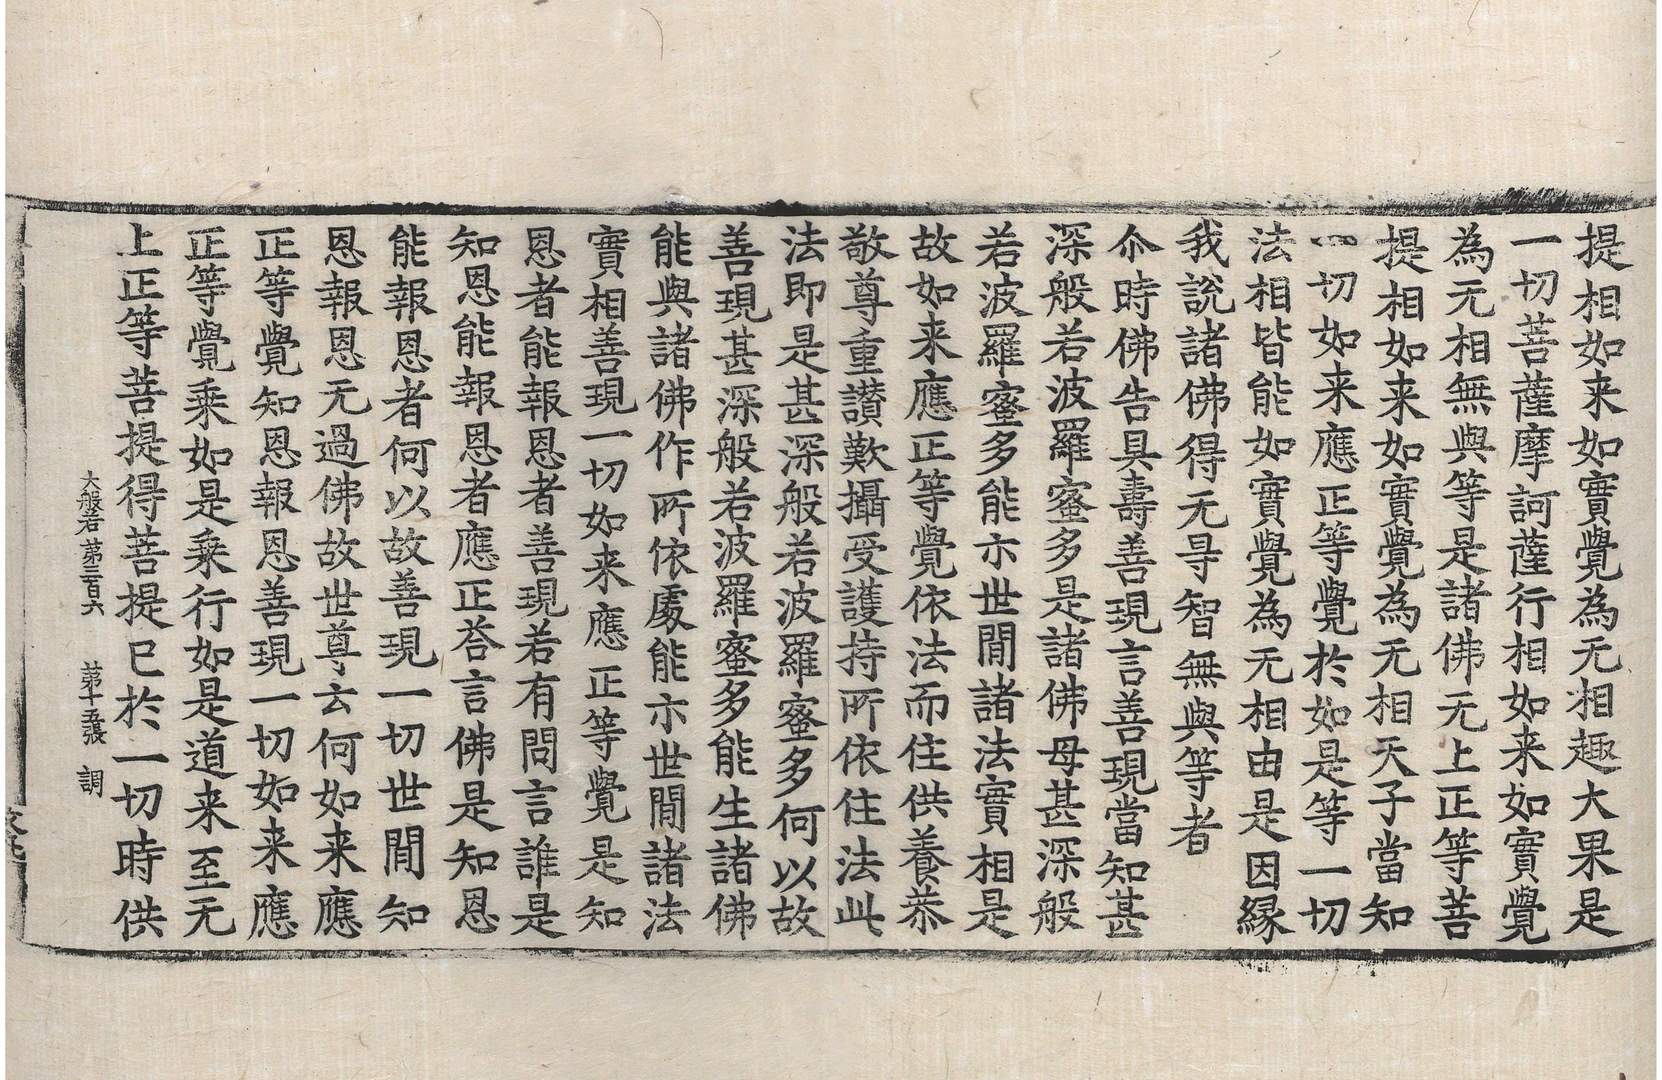 提相如来如實覺為无相趣大果是
一切菩薩摩訶薩行相如来如實覺
為无相無與等是諸佛无上正等菩
提相如来如實覺為无相天子當知
一切如来應正等覺於如是等一切
法相皆能如實覺為无相由是因緣
我說諸佛得无㝵智無與等者
尒時佛告具壽善現言善現當知甚
深般若波羅蜜多是諸佛母甚深般
若波羅蜜多能示世間諸法實相是
故如来應正等覺依法而住供養恭
敬尊重讃歎攝受護持所依住法此
法即是甚深般若波羅蜜多何以故
善現甚深般若波羅蜜多能生諸佛
能與諸佛作所依處能示世間諸法
實相善現一切如来應正等覺是知
恩者能報恩者善現若有問言誰是
知恩能報恩者應正荅言佛是知恩
能報恩者何以故善現一切世間知
恩報恩无過佛故世尊云何如来應
正等覺知恩報恩善現一切如来應
正等覺乘如是乘行如是道来至无
上正等菩提得菩提已於一切時供
大般若第三百六 第十五張 調